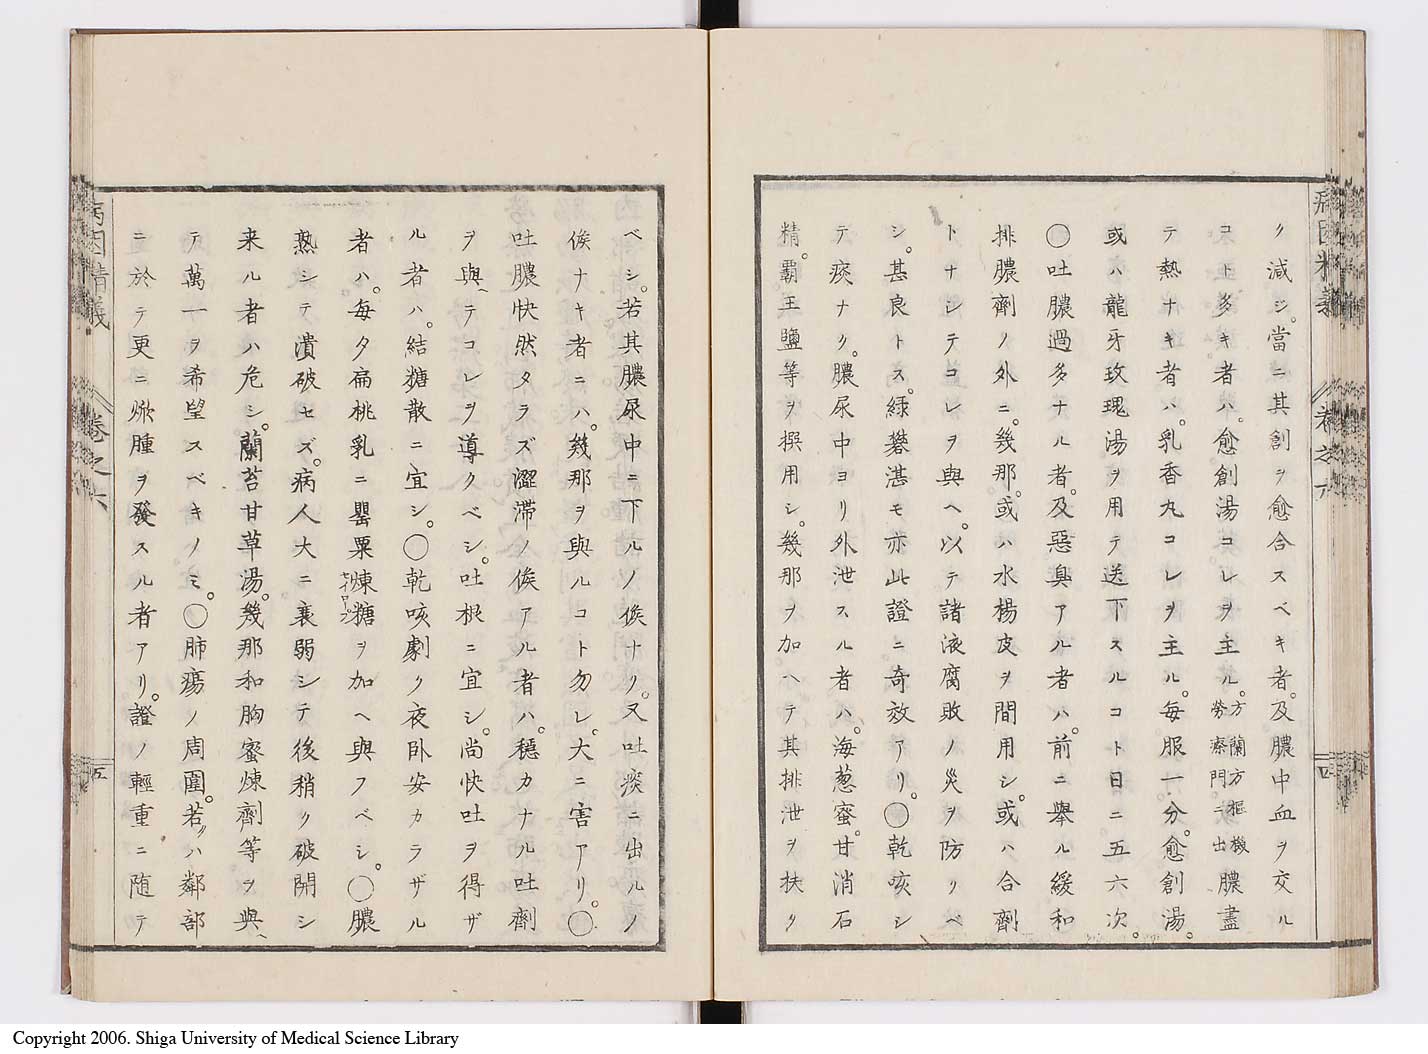 病因精義
卷之六
ク減シ。當ニ其創ヲ愈合スベキ者。及膿中血ヲ交ル
コト多キ者ハ。愈創湯コレヲ主ル。方蘭方樞機勞瘵門ニ出膿盡
テ熱ナキ者ハ。乳香丸コレヲ主ル。毎服一分。愈創湯。
或ハ龍牙玫瑰湯ヲ用テ送下スルコト日ニ五六次。
〇吐膿過多ナル者。及惡臭アル者ハ。前ニ舉ル緩和
排膿劑ノ外ニ。幾那。或ハ水楊皮ヲ間用シ。或ハ合劑
トナシテコレヲ與ヘ。以テ諸液腐敗ノ災ヲ防クベ
シ。甚良トス。綠礬湛モ亦此證ニ奇效アリ。〇乾咳シ
テ痰ナク。膿尿中ヨリ外泄スル者ハ。海葱蜜。甘消石
精。覇王鹽等ヲ撰用シ。幾那ヲ加ヘテ其排泄ヲ扶ク
ベシ。若其膿尿中ニ下ルノ候ナリ。又吐痰ニ出ルノ
候ナキ者ニハ。幾那ヲ與ルコト勿レ。大ニ害アリ。〇
吐膿快然タラズ澀滯ノ候アル者ハ。穩カナル吐劑
ヲ與テコレヲ導クベシ。吐根ニ宜シ。尚快吐ヲ得ザ
ル者ハ。結糖散ニ宜シ。〇乾咳劇ク夜卧安カラザル
者ハ。毎夕扁桃乳ニ罌粟煉糖ヲ加ヘ與フベシ。〇膿
熟シテ潰破セズ。病人大ニ衰弱シテ後稍ク破開シ
来ル者ハ危シ。蘭苔甘草湯。幾那和胸蜜煉劑等ヲ與
テ萬一ヲ希望スベキノミ。〇肺瘍ノ周圍。若ハ鄰部
ニ於テ更ニ焮腫ヲ發スル者アリ。證ノ輕重ニ随テ
病因精義
卷之六
五
Copyright 2006. Shiga University of Medical Science Library